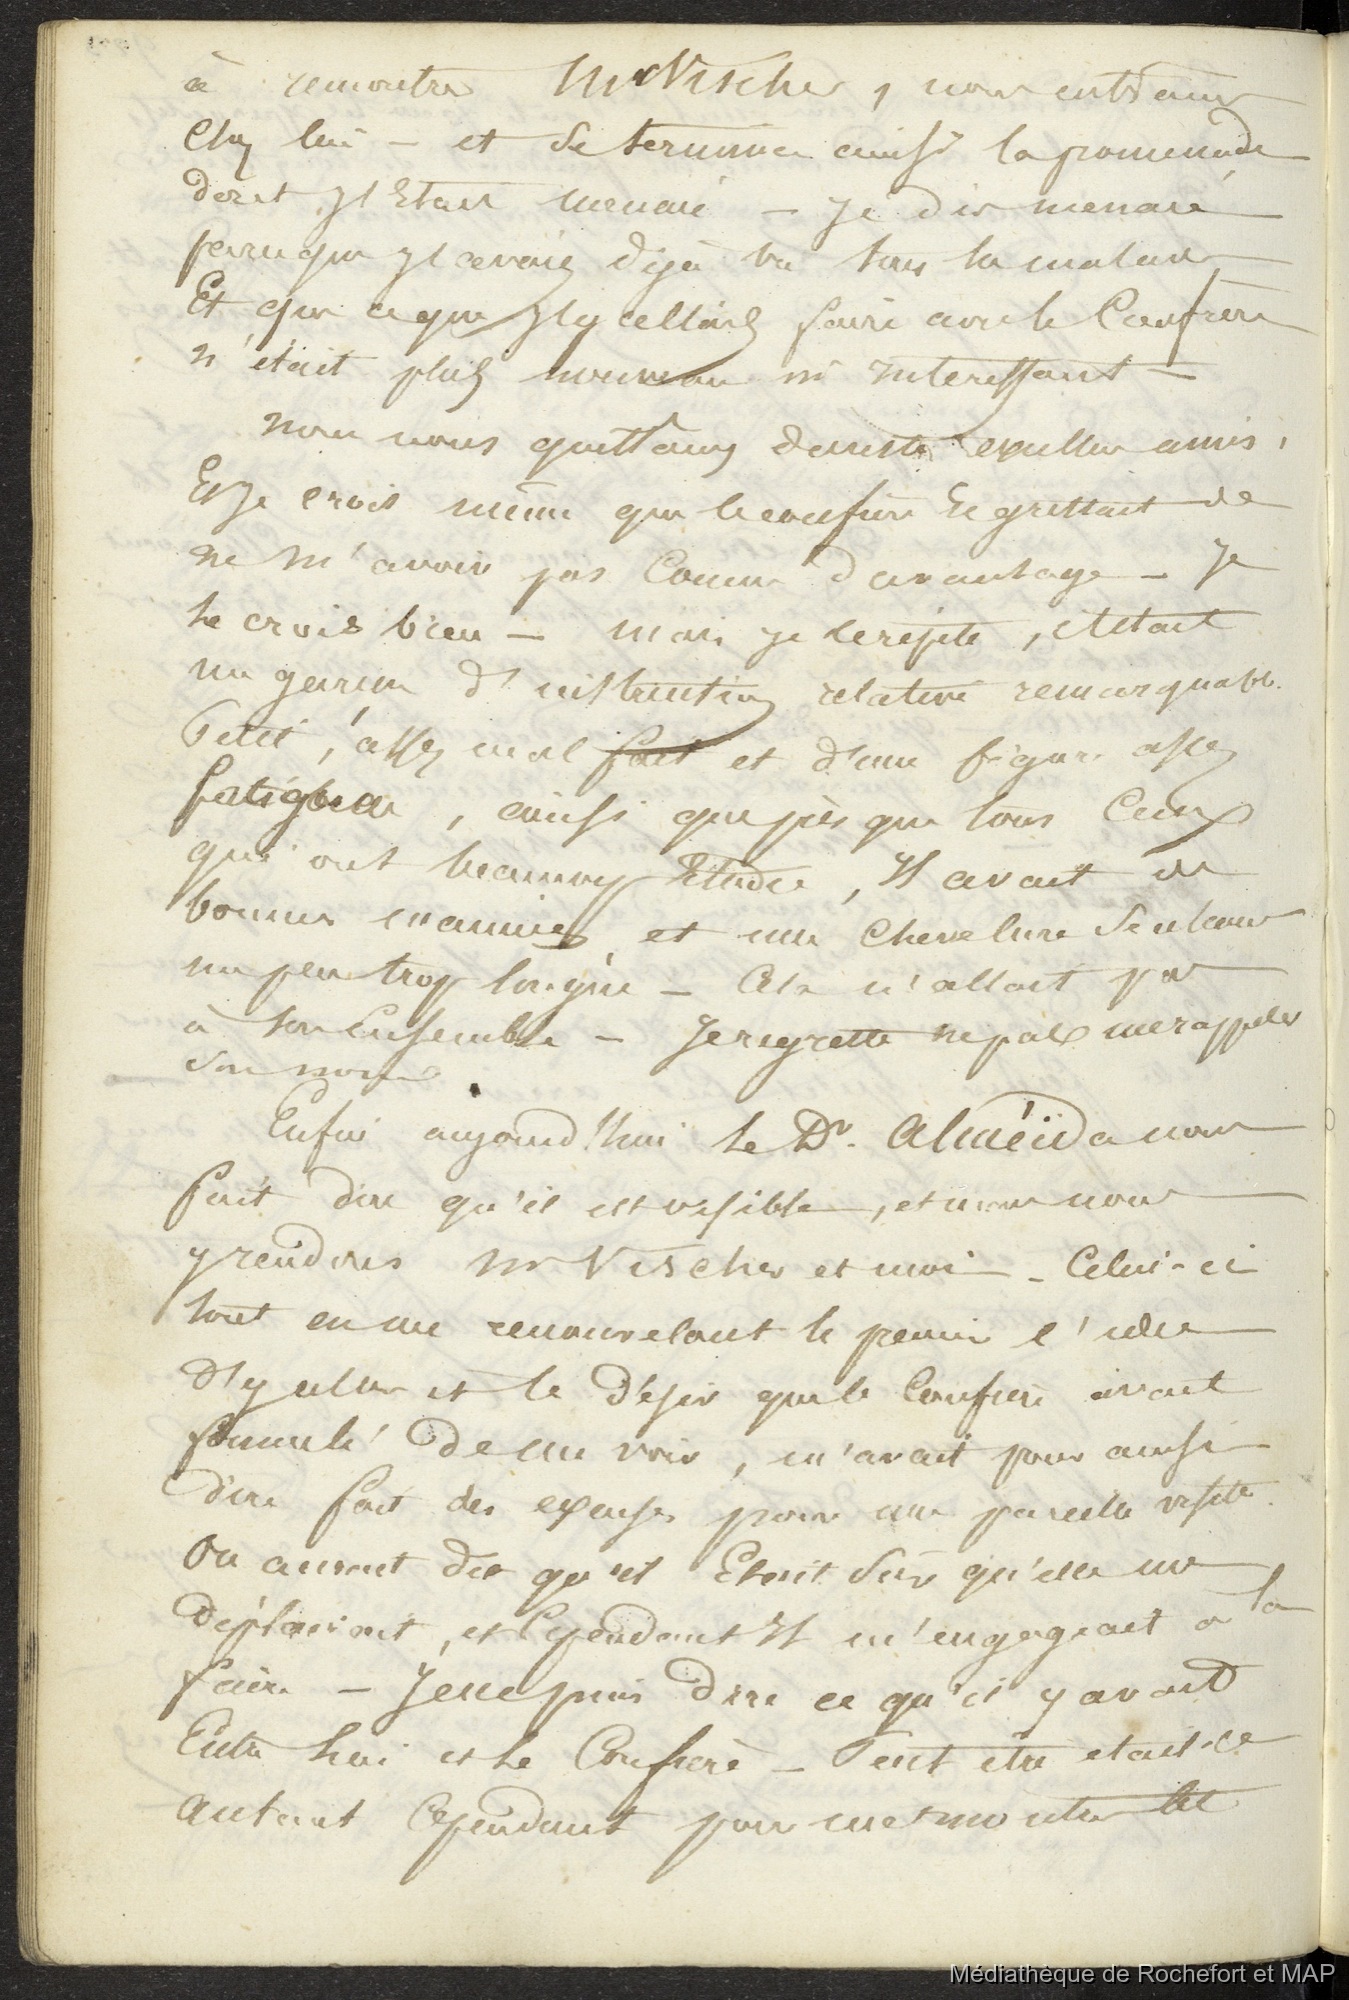 à remontrer Mr Vischer, nous entrâmes
chez lui — et se termina ainsi la promenade
dont J'étais menacé — Je dis menacé
parceque J'avais déjà vu tous les malades
Et que ce que J'y allais faire avec le Confrère
n'était plus nouveau ni interessant —
Nous nous quittames du reste excellens amis,
Et Je crois même que le confrère regrettait de
ne m'avoir pas Connu d'avantage — Je
le crois bien — mais je le répète, c'etait
un garçon d'instruction relative remarquable.
Petit, assez mal fait et d'une figure assez
fatiguée, ainsi que presque tous Ceux
qui ont beaucoup Etudié, Il avait de
bonnes manières et une Chevelure Seulement
un peu trop longue — Cela n'allait pas
à son Ensemble — Je regrette ne pas me rappeler
son nom.
Enfin aujourd'hui le Dr. Alméïda nous
fait dire qu'il est visible, et nous nous
y rendons Mr Vischer et moi — Celui-ci
tout en me renouvelant le premier l'idée
d'y aller et le désir que le Confrère avait
formulé de me voir, m'avait pour ainsi
dire fait des excuses pour une pareille visite.
On aurait dit qu'il Etait Sûr qu'elle me
déplairait, et Cependant Il m'engageait à la
faire — Je ne puis dire ce qu'il y avait
Entre lui et le Confrère — Peut être était-ce
autant Cependant pour me montrer